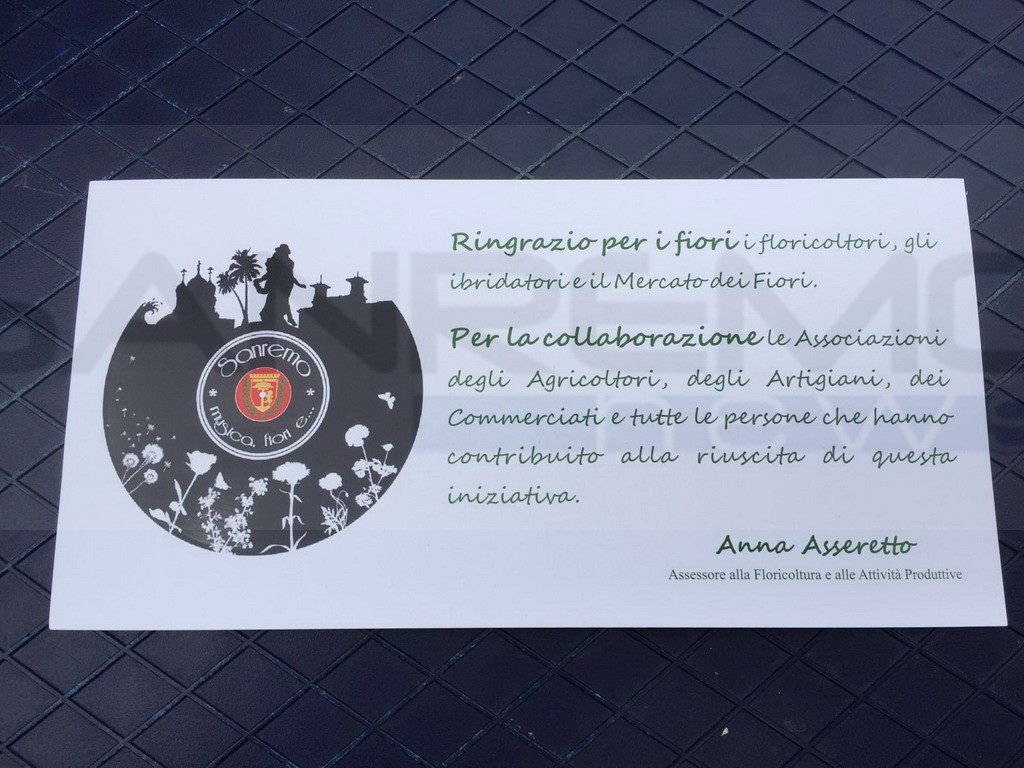 Ringrazio per i fiori i floricoltori, gli
ibridatori e il Mercato dei Fiori.
Per la collaborazione le Associazioni
degli Agricoltori, degli Artigiani, dei
Commerciati e tutte le persone che hanno
contribuito alla riuscita di questa
iniziativa.
Anna Asseretto
Assessore alla Floricoltura e alle Attività Produttive
Sanremo
* musica, fiori e... *
SANREMO
news